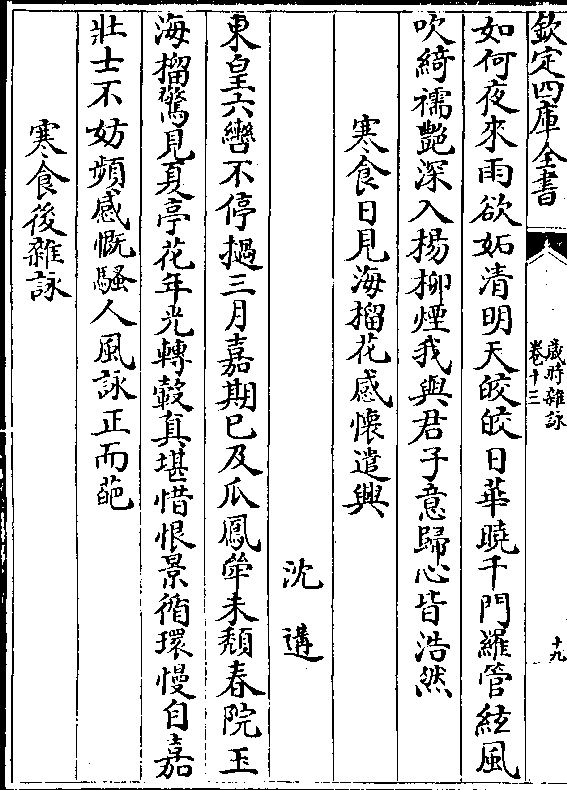 欽定四庫全書
歲時雜詠
卷十三
十九
如何夜來雨欲妬清明天皎皎日華曉千門羅管絃風
吹綺襦艶深入楊柳煙我與君子意歸心皆浩然
寒食日見海榴花感懷遣興
沈遘
東皇六轡不停撾三月嘉期巳及瓜鳳犖未頽春院玉
海榴驚見夏亭花年光轉轂真堪惜恨景循環慢自嘉
壯士不妨頻感慨騷人風詠正而葩
寒食後雜詠